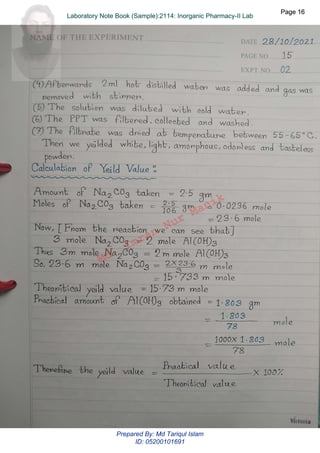 Page 16
Laboratory Note Book (Sample):2114: Inorganic Pharmacy-II Lab
NAME OF THE EXPERIMENT
DATE 28/10/2021
PAGE NO. 15
EXPT NO. 02
(4) Afterwards 2ml hot distilled water was added and gas was
removed with stirrer.
(5) The solution was diluted with cold water.
(6) The PPT was filtered, collected and washed.
(7) The filtrate was dried at temperature between 55-65°C.
Then we yeilded white, light, amorphous, odorless and tasteless
powder.
Calculation of Yeild Value :
Amount of Na2CO3 taken = 2.5 gm
Moles of Na2CO3 taken = 2.5/106 gm = 0.0236 mole
= 23.6 mole
Now, [From the reaction we can see that]
3 mole Na2CO3 = 2 mole Al(OH)3
Thus 3m mole Na2CO3 = 2m mole Al(OH)3
So, 23.6 m mole Na2CO3 = 2X23.6/3 m mole
= 15.733 m mole
Theoritical yeild value = 15.73 m mole
Practical amount of Al(OH)3 obtained = 1.803 gm
= 1.803/78 mole
= 1000X1.803/78 mole
Therefore the yeild value = Practical value/Theoritical value X 100%
Victoria
Prepared By: Md Tariqul Islam
ID: 05200101691